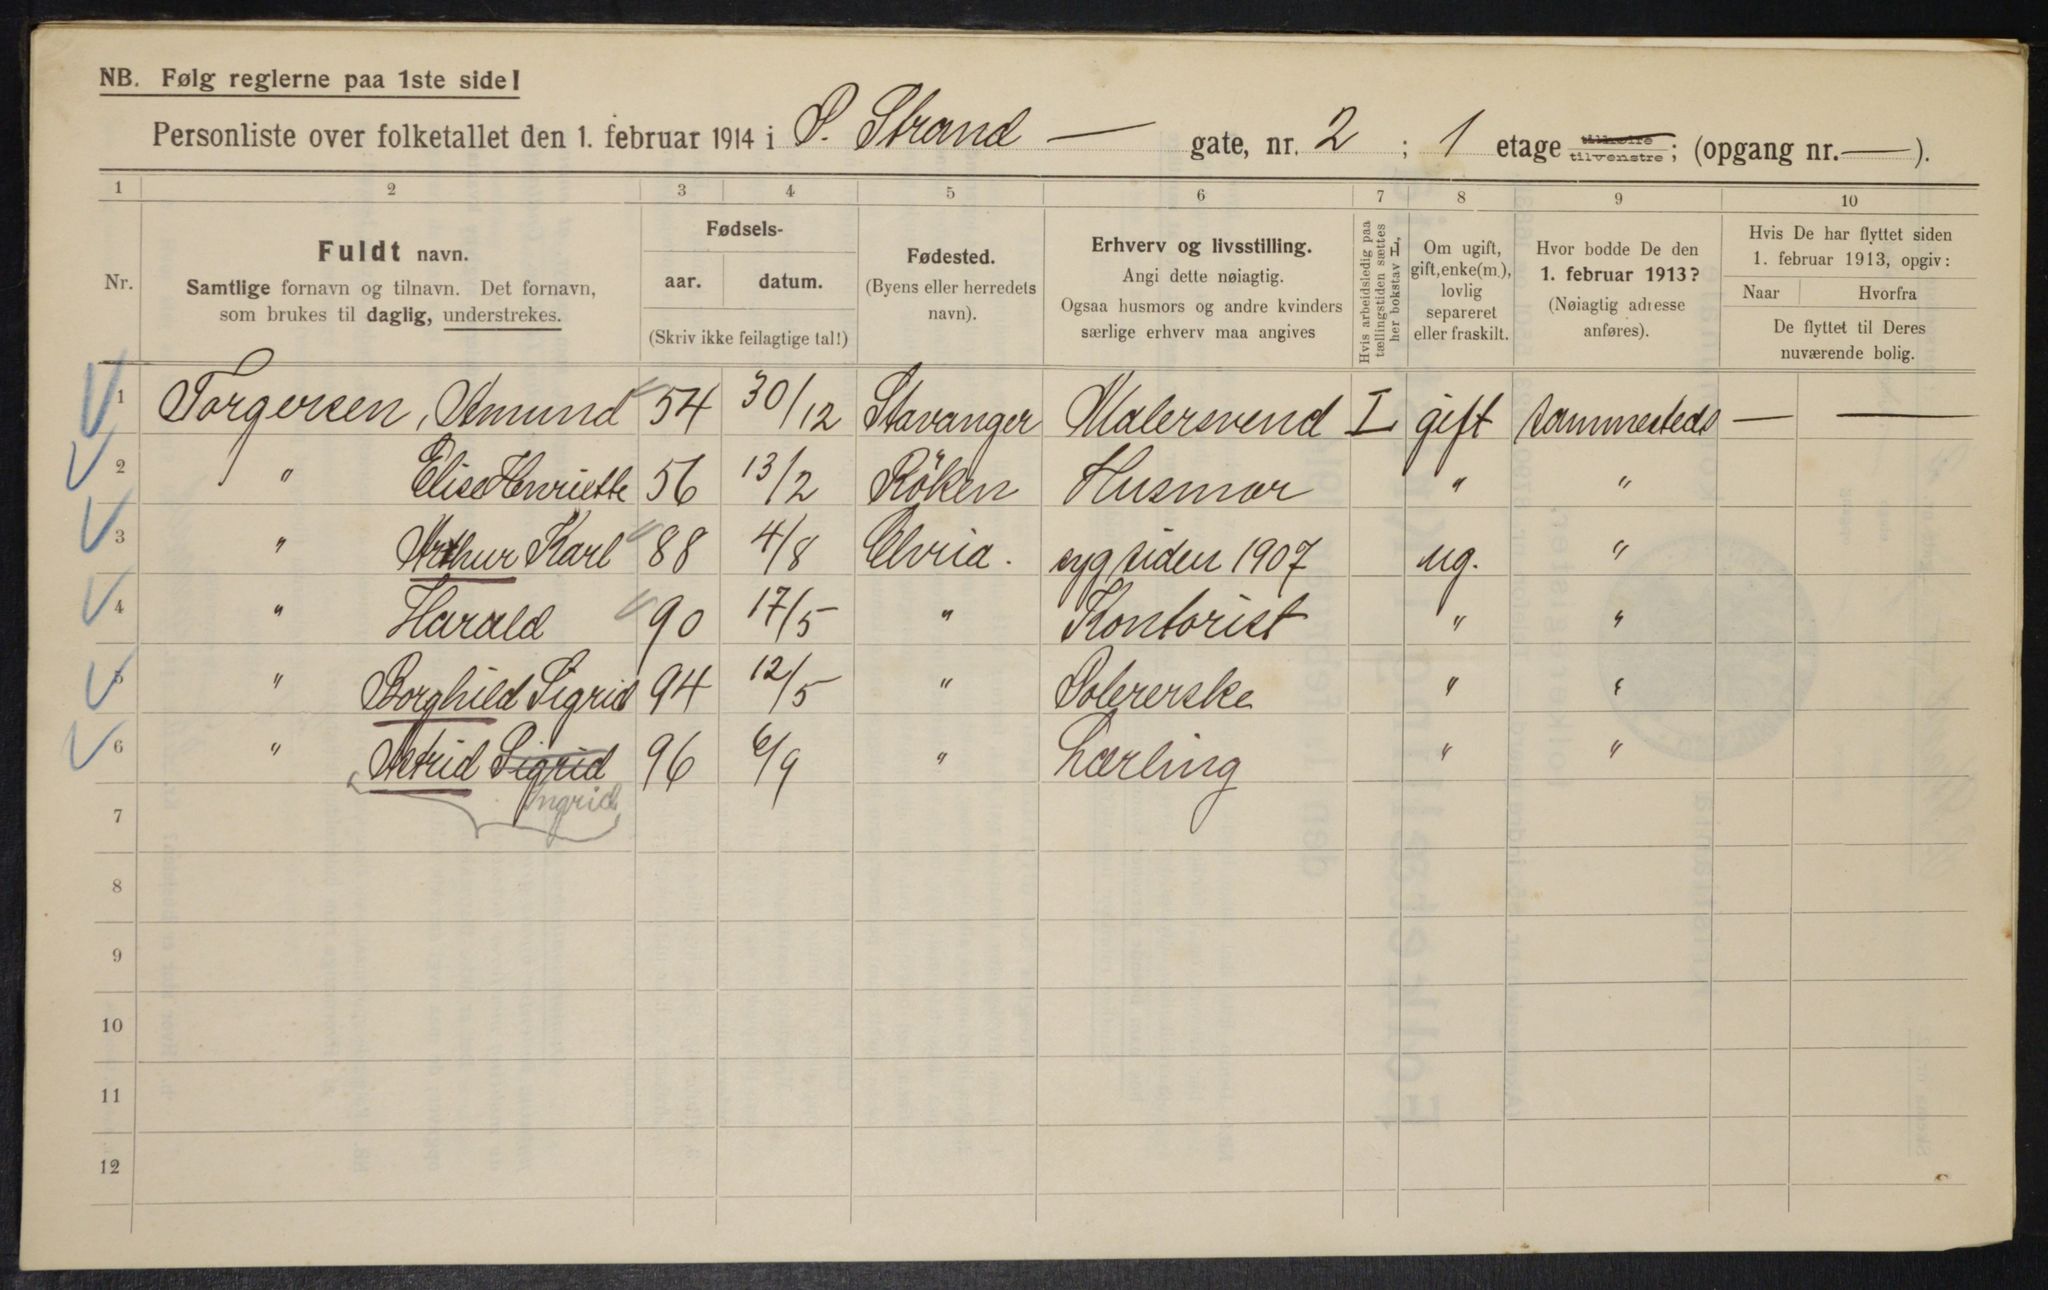 NB. Følg reglerne paa 1ste side!
Personliste over folketallet den 1. februar 1914 i S. Strand — gate, nr. 2 ; 1 etage tilhøire tilvenstre ; (opgang nr. — ).
1 2 3 4 5 6 7 8 9 10
Nr.
Fuldt navn.
Samtlige fornavn og tilnavn. Det fornavn,
som brukes til daglig, understrekes.
Fødsels-
aar. datum.
(Skriv ikke feilagtige tal!)
Fødested.
(Byens eller herredets
navn).
Erhverv og livsstilling.
Angi dette nøiagtig.
Ogsaa husmors og andre kvinders
særlige erhverv maa angives
Hvis arbeidsledig paa
tællingstiden sættes
her bokstav L,
Om ugift,
gift, enke(m.),
lovlig
separeret
eller fraskilt.
Hvor bodde De den
1. februar 1913?
(Nøiagtig adresse
anføres).
Hvis De har flyttet siden
1. februar 1913, opgiv:
Naar Hvorfra
De flyttet til Deres
nuværende bolig.
1 Torgersen, Amund 54 30/12 Stavanger Malersvend L gift sammesteds — —
2 " Elise Henriette 56 13/2 Röken Husmor " "
3 " Arthur Karl 88 4/8 Chria. syg siden 1907 ug. "
4 " Harald 90 17/5 " Kontorist " "
5 " Borghild Sigrid 94 12/5 " Polererske " "
6 " Astrid Sigrid 96 6/9 " Lærling " "
Ingrid
7
8
9
10
11
12